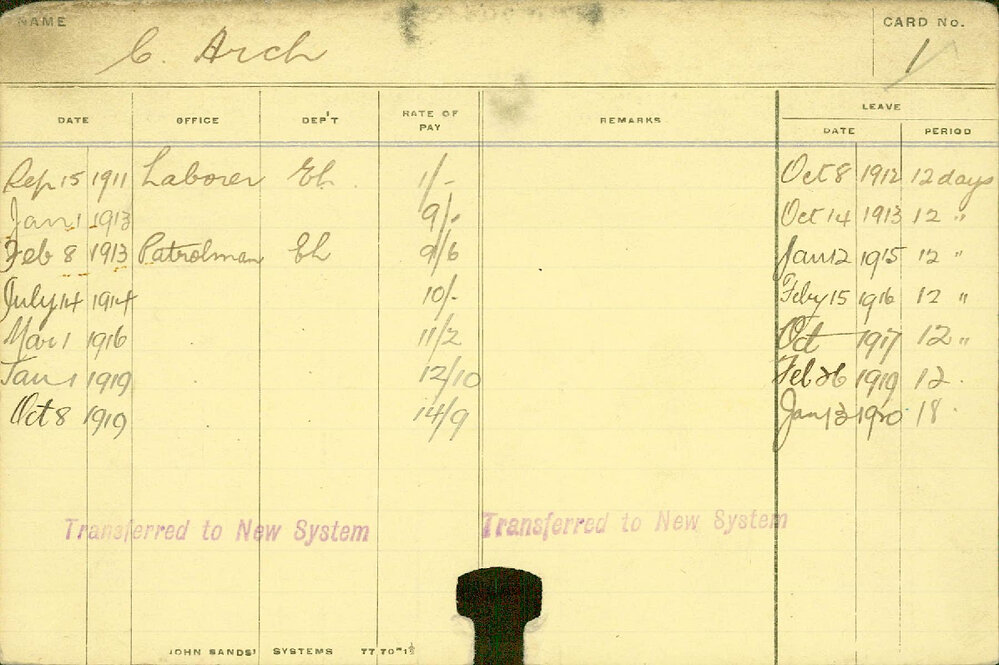 NAME CARD No.
C. Arch 1
LEAVE
DATE OFFICE DEP'T RATE OF PAY REMARKS DATE PERIOD
Sep 15 1911 Laborer Eh. 1/- Oct 8 1912 12 days
Jan 1 1913 9/- Oct 14 1913 12 "
Feb 8 1913 Patrolman Eh 9/6 Jan 12 1915 12 "
July 14 1914 10/- Feby 15 1916 12 "
Mar 1 1916 11/2 Oct 1917 12 "
Jan 1 1919 12/10 Feb 26 1919 12.
Oct 8 1919 14/9 Jan 13 1920 18.
Transferred to New System Transferred to New System
JOHN SANDS' SYSTEMS